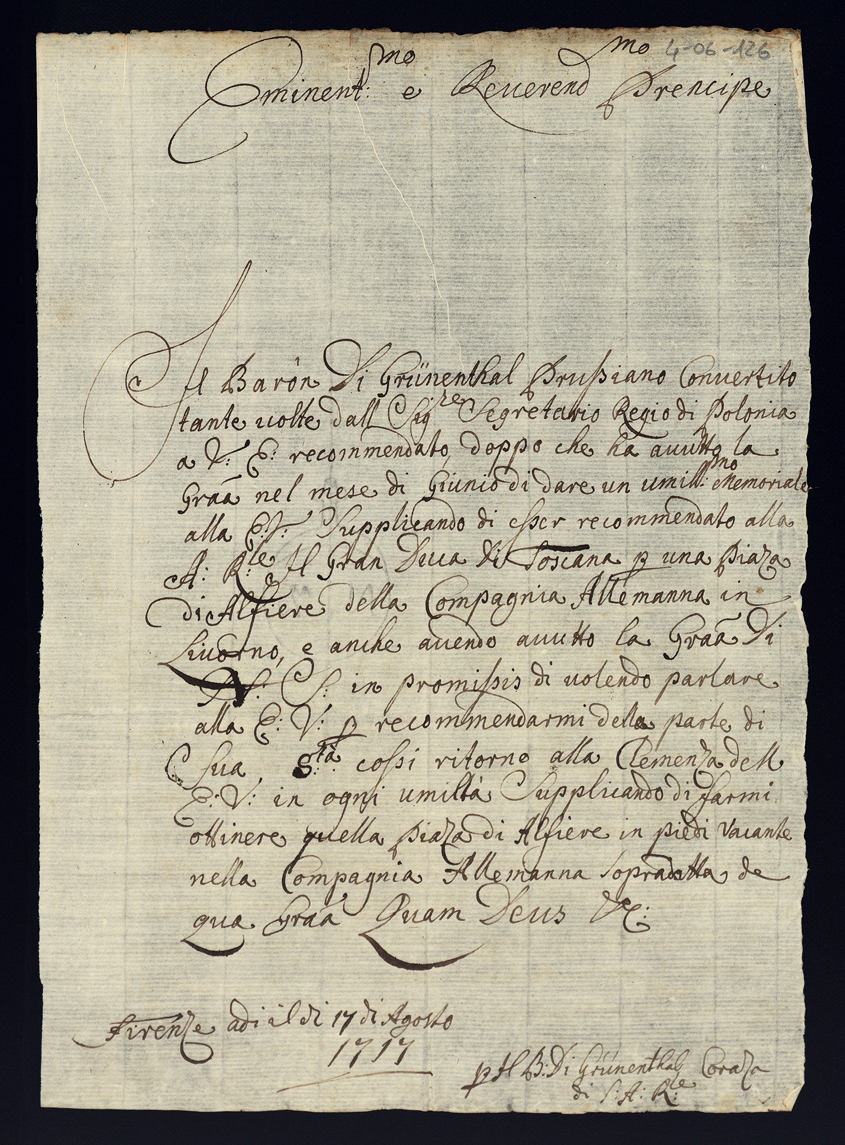 4-06-126
Eminent:mo e Reuerendmo Prencipe
Il Barôn Di Grünenthal Prußiano Conuertito
tante uolte dall Sigre Segretario Regio di Polonia
a V: E: recommendato, doppo che ha auutto la
Graã nel mese di Giunio di dare un umill:mo Memoriale
alla E:V: Supplicando di esser recommendato alla
A: Rle Il Gran Duca di Toscana p una Piaza
di Alfiere della Compagnia Allemanna in
Liuorno, e anche auendo auutto la Graã Di
S: in promissis di uolendo parlare
alla E: V: p recommendarmi della parte di
Sua S:tà cossi ritorno alla Clemenza dell
E:V: in ogni umiltà Supplicando di farmi
ottinere quella Piaza di Alfiere in piedi Vacante
nella Compagnia Allemanna sopradetta de
qua Graã Quam Deus &c:
Firenze adi il di 17 di Agosto
1717
p Il B: Di Grünenthal Coraza
di S: A: R:le